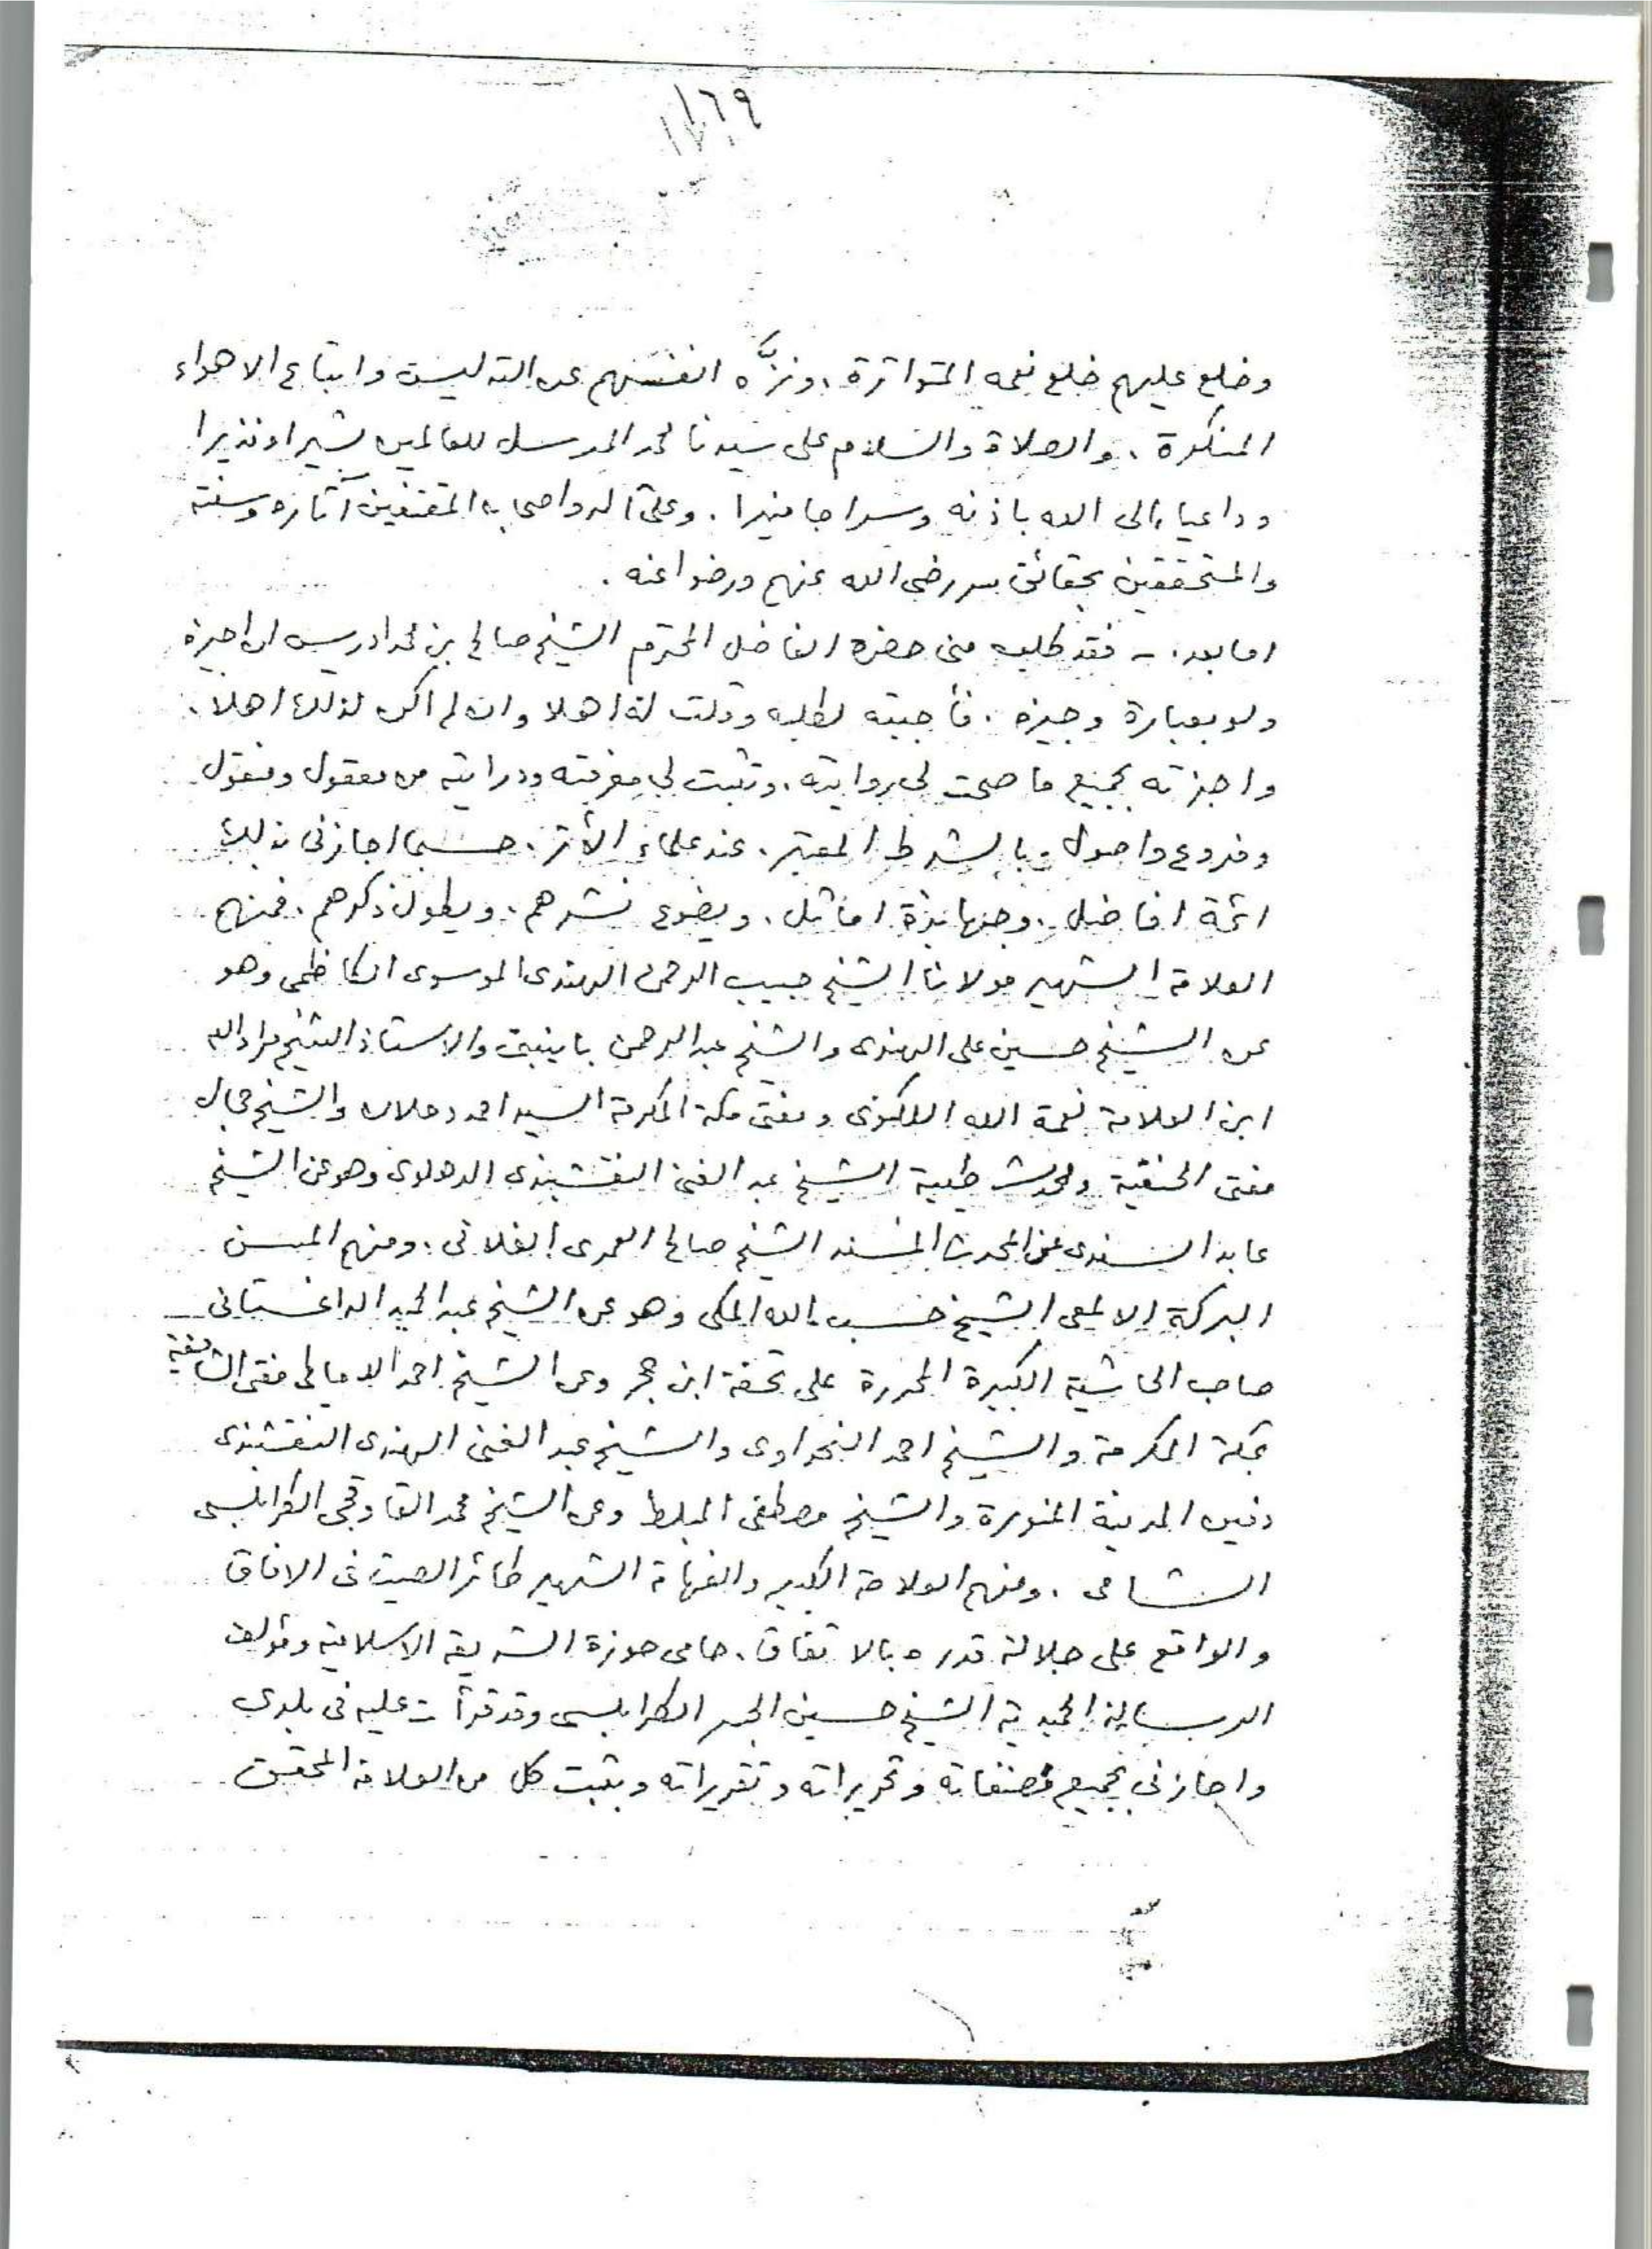 ١٦٩
وخلع عليهم خلع نعمه المتواترة، ونزَّه انفسهم عن التدليس واتباع الاهواء
المنكرة، والصلاة والسلام على سيدنا محمد المرسل للعالمين بشيرا ونذيرا
وداعيا إلى الله باذنه وسراجا منيرا. وعلى آله واصحابه المقتفين آثاره وسنته
والمتحققين بحقائق سر رضى الله عنهم ورضوا عنه.
اما بعد:ـ فقد طلب منى حضرة الفاضل المحترم الشيخ صالح بن محمد ادريس ان اجيزه
ولو بعبارة وجيزه. فأجبته لطلبه وقلت له اهلا وان لم اكن لذلك اهلا.
واجزته بجميع ما صحت لي روايته، وثبت لي معرفته ودرايته من معقول ومنقول
وفروع واصول، بالشرط المعتبر، عند علماء الأثر، حسبما اجازنى بذلك
ائمة افاضل، وجهابذة اماثل، ويضوع نشرهم، ويطول ذكرهم. فمنهم
العلامة الشهير مولانا الشيخ حبيب الرحمن الهندى الموسوى الكاظمى وهو
عن الشيخ حسين على الهندى والشيخ عبد الرحمن باينبتى والاستاذ الشيخ مراد الله
ابن العلامة نعمة الله اللكنوى ومفتى مكة المكرمة السيد احمد دحلان والشيخ جمال
مفتى الحنفية ومحدث طيبة الشيخ عبد الغنى النقشبندى الدهلوى وهو عن الشيخ
عابد السندى عن المحدث المسند الشيخ صالح العمرى الفلانى، ومنهم المسن
البركة الالمعى الشيخ حسب الله المكى وهو عن الشيخ عبد الحميد الداغستانى
صاحب الحاشية الكبيرة المحررة على تحفة ابن حجر وعن الشيخ احمد الدمياطى مفتى الشافعية
بمكة المكرمة والشيخ احمد النحراوى والشيخ عبد الغنى الهندى النقشبندى
دفين المدينة المنورة والشيخ مصطفى المبلط وعن الشيخ محمد القاوقجى الطرابلسى
الشامى. ومنهم العلامة الكبير والفهامة الشهير طائر الصيت فى الافاق
والواقع على جلالة قدره بالاتفاق، حامى حوزة الشريعة الاسلامية ومؤلف
الرسالة الحميدية الشيخ حسين الجسر الطرابلسى وقد قرأت عليه فى بلدى
واجازنى بجميع مصنفاته وتحريراته وتقريراته وبثبت كل من العلامة المحقق